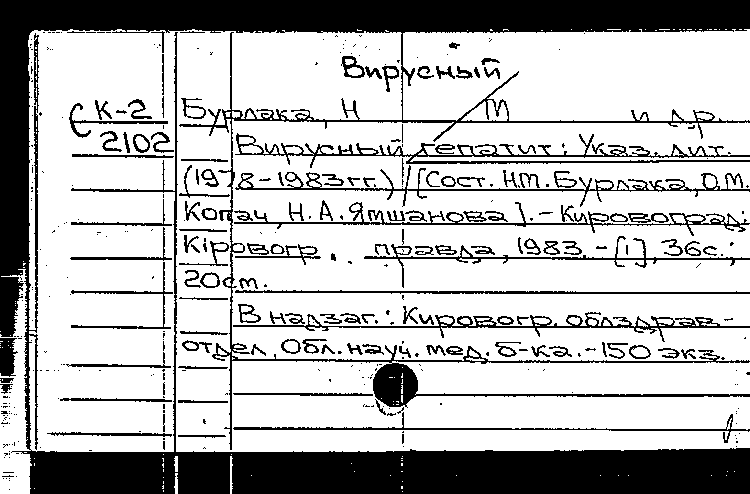 Вирусный
К-2
2102
Бурлака, Н М и др.
Вирусный гепатит: Указ. лит.
(1978-1983гг.) / [Сост. Н.М. Бурлака, О.М.
Копач, Н.А. Ямшанова]. - Кировоград:
Кіровогр. правда, 1983. - [1], 36с.;
20см.
В надзаг.: Кировогр. облздрав-
отдел, Обл. науч. мед. б-ка. - 150 экз.